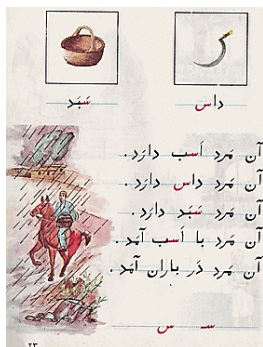 داس
سَبَد
آن مَرد اَسب دارَد.
آن مَرد داس دارَد.
آن مَرد سَبَد دارَد.
آن مَرد با اَسب آمَد.
آن مَرد دَر باران آمَد.
سـ س
۲۳